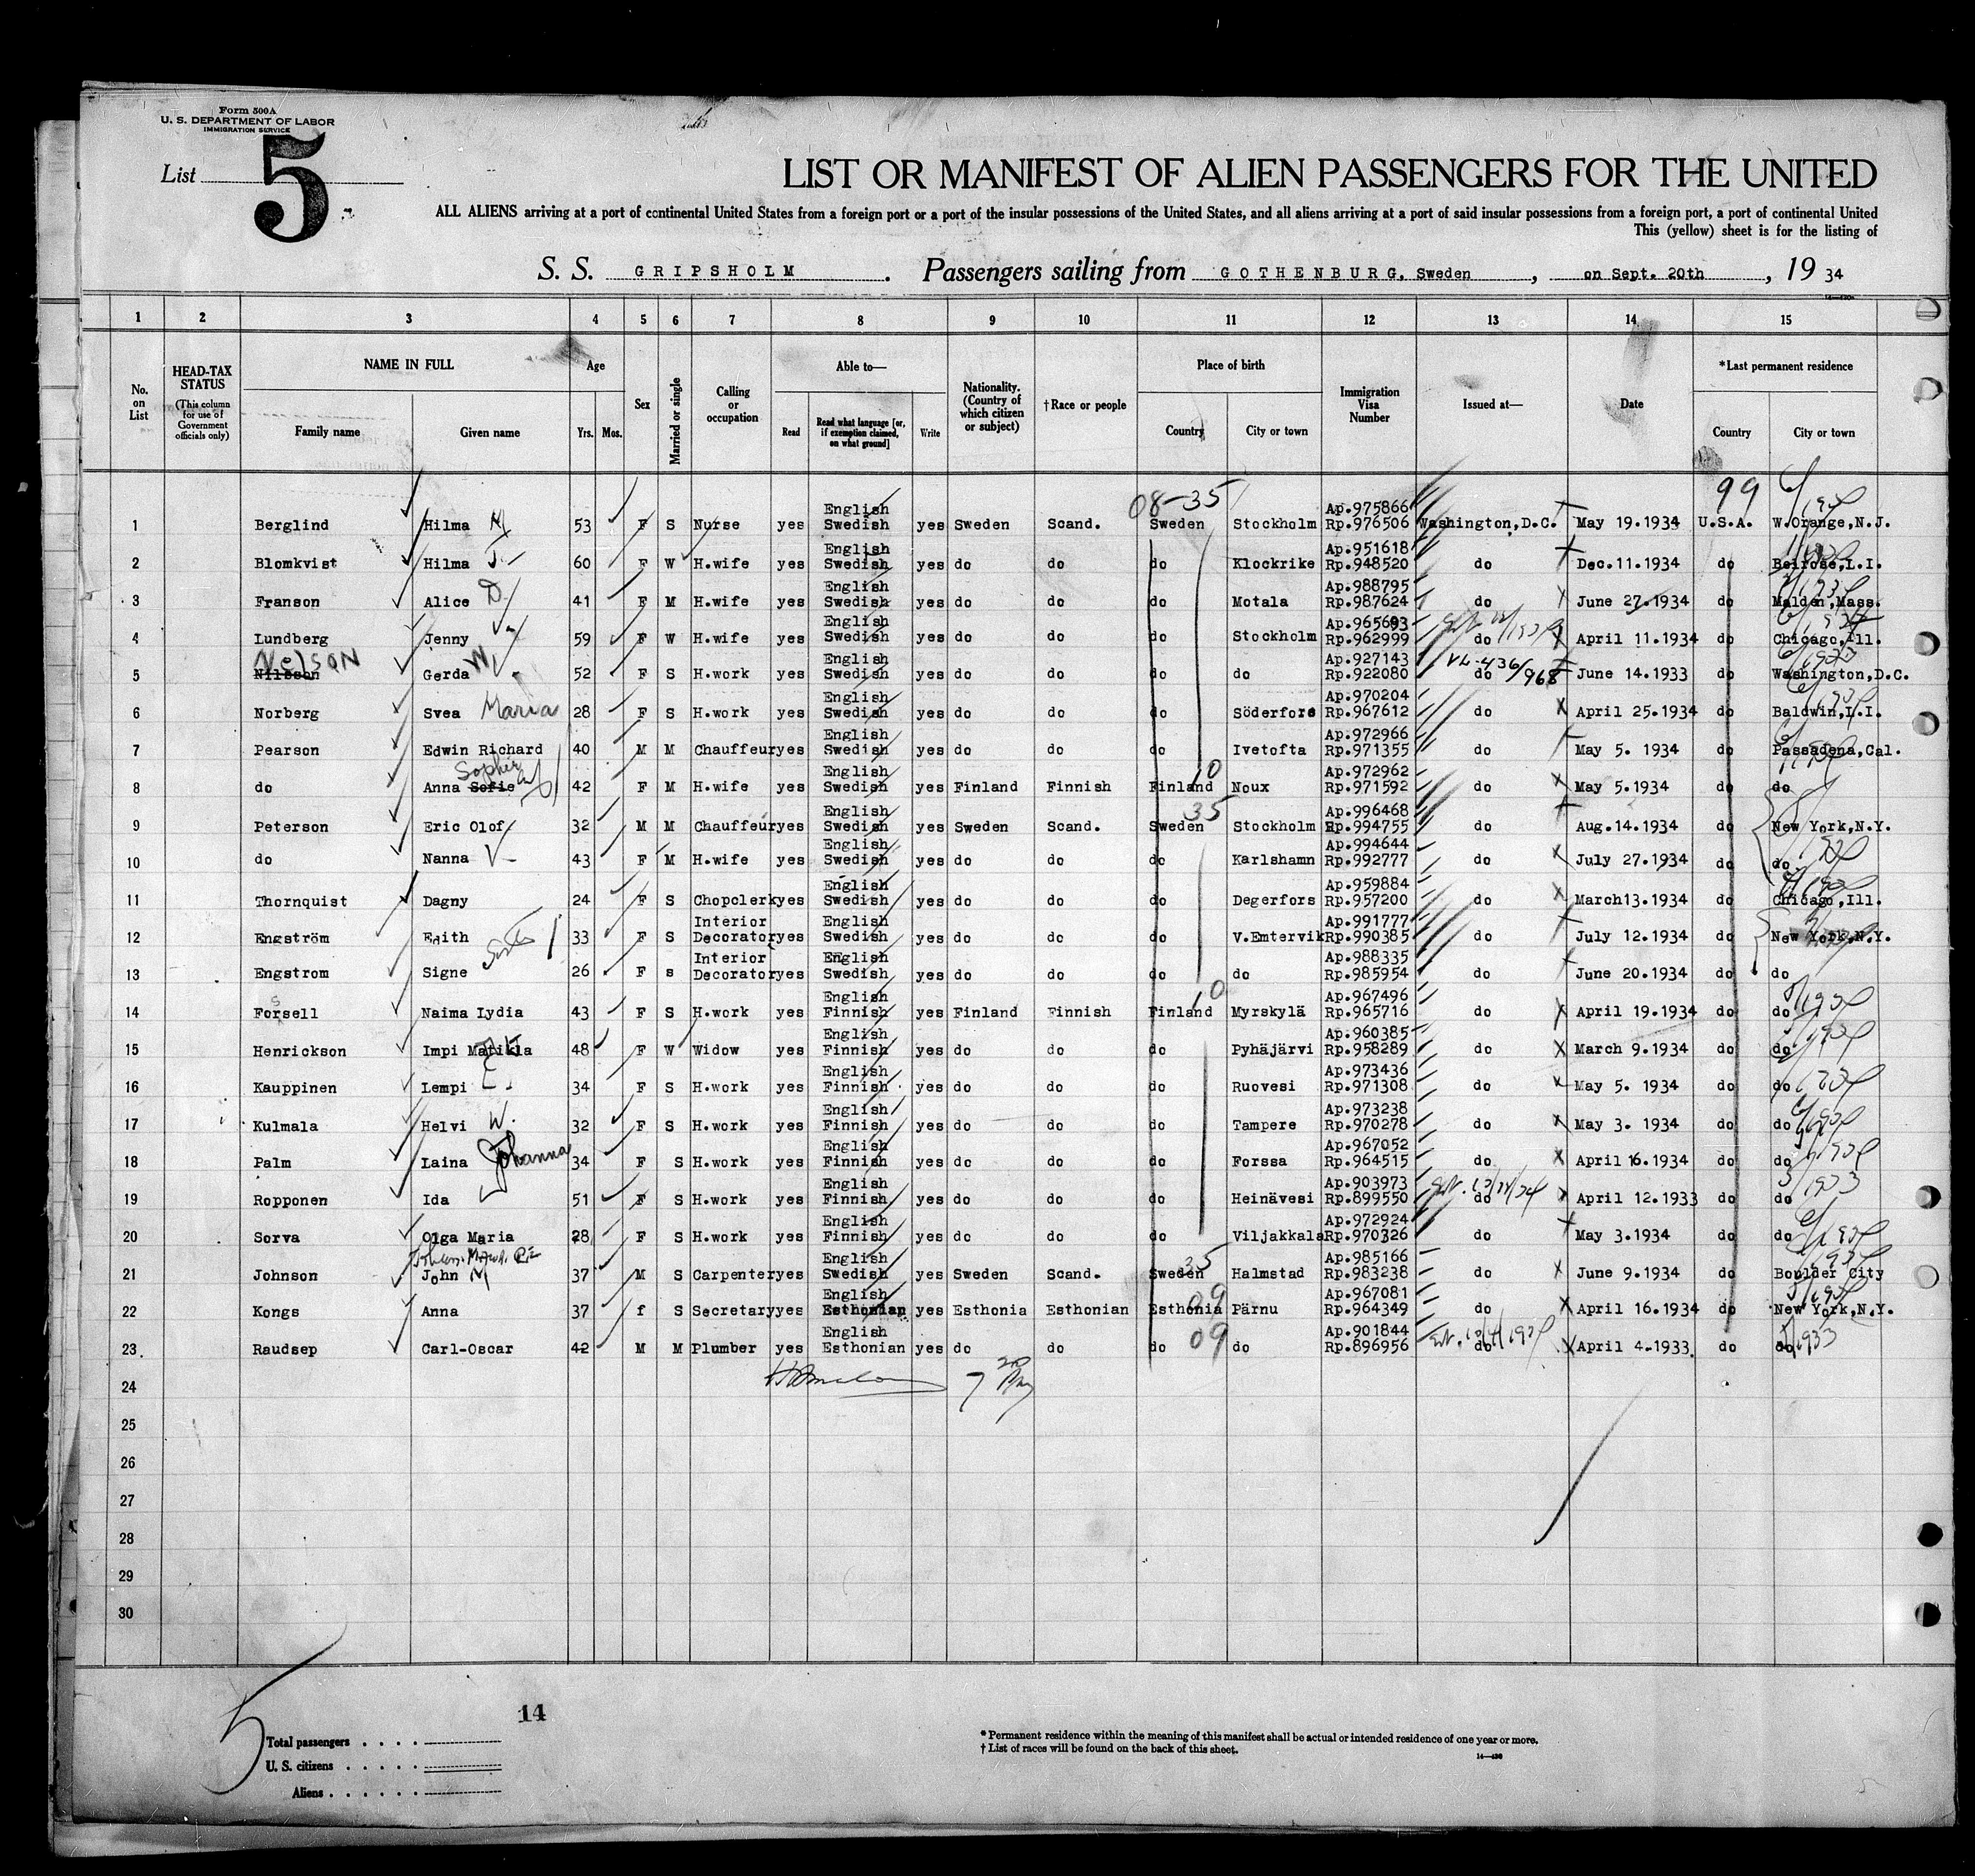 Form 500A
U. S. DEPARTMENT OF LABOR
IMMIGRATION SERVICE
List 5
LIST OR MANIFEST OF ALIEN PASSENGERS FOR THE UNITED
ALL ALIENS arriving at a port of continental United States from a foreign port or a port of the insular possessions of the United States, and all aliens arriving at a port of said insular possessions from a foreign port, a port of continental United
This (yellow) sheet is for the listing of
S. S. GRIPSHOLM. Passengers sailing from GOTHENBURG, Sweden, on Sept. 20th, 19 34
1 2 3 4 5 6 7 8 9 10 11 12 13 14 15
No. on List
HEAD-TAX STATUS (This column for use of Government officials only)
NAME IN FULL
Family name Given name
Age
Yrs. Mos.
Sex
Married or single
Calling or occupation
Able to—
Read
Read what language [or, if exemption claimed, on what ground]
Write
Nationality. (Country of which citizen or subject)
†Race or people
Place of birth
Country City or town
Immigration Visa Number
Issued at—
Date
*Last permanent residence
Country City or town
08-35 99
English Ap.975866
1 Berglind Hilma M 53 F S Nurse yes Swedish yes Sweden Scand. Sweden Stockholm Rp.976506 Washington,D.C. May 19.1934 U.S.A. W.Orange,N.J.
English Ap.951618
2 Blomkvist Hilma J. 60 F W H.wife yes Swedish yes do do do Klockrike Rp.948520 do Dec.11.1934 do Belrose,L.I.
English Ap.988795
3 Franson Alice D 41 F M H.wife yes Swedish yes do do do Motala Rp.987624 do June 27.1934 do Malden,Mass.
English Ap.965693
4 Lundberg Jenny V. 59 F W H.wife yes Swedish yes do do do Stockholm Rp.962999 do April 11.1934 do Chicago,Ill.
Nelson English Ap.927143
5 Nilsson Gerda W 52 F S H.work yes Swedish yes do do do do Rp.922080 do June 14.1933 do Washington,D.C.
English Ap.970204
6 Norberg Svea Maria 28 F S H.work yes Swedish yes do do do Söderfors Rp.967612 do April 25.1934 do Baldwin,L.I.
English Ap.972966
7 Pearson Edwin Richard 40 M M Chauffeur yes Swedish yes do do do Ivetofta Rp.971355 do May 5. 1934 do Passadena,Cal.
Sophie English 10 Ap.972962
8 do Anna Sofie 42 F M H.wife yes Swedish yes Finland Finnish Finland Noux Rp.971592 do May 5.1934 do do
English 35 Ap.996468
9 Peterson Eric Olof 32 M M Chauffeur yes Swedish yes Sweden Scand. Sweden Stockholm Rp.994755 do Aug.14.1934 do New York,N.Y.
English Ap.994644
10 do Nanna V 43 F M H.wife yes Swedish yes do do do Karlshamn Rp.992777 do July 27.1934 do do
English Ap.959884
11 Thornquist Dagny 24 F S Chopclerk yes Swedish yes do do do Degerfors Rp.957200 do March13.1934 do Chicago,Ill.
Interior English Ap.991777
12 Engström Edith 33 F S Decorator yes Swedish yes do do do V.Emtervik Rp.990385 do July 12.1934 do New York,N.Y.
Interior English Ap.988335
13 Engstrom Signe 26 F s Decorator yes Swedish yes do do do do Rp.985954 do June 20.1934 do do
English 10 Ap.967496
14 Forsell Naima Lydia 43 F S H.work yes Finnish yes Finland Finnish Finland Myrskylä Rp.965716 do April 19.1934 do do
English Ap.960385
15 Henrickson Impi 48 F W Widow yes Finnish yes do do do Pyhäjärvi Rp.958289 do March 9.1934 do do
English Ap.973436
16 Kauppinen Lempi E. 34 F S H.work yes Finnish yes do do do Ruovesi Rp.971308 do May 5. 1934 do do
English Ap.973238
17 Kulmala Helvi W. 32 F S H.work yes Finnish yes do do do Tampere Rp.970278 do May 3. 1934 do do
English Ap.967052
18 Palm Laina Johanna 34 F S H.work yes Finnish yes do do do Forssa Rp.964515 do April 16.1934 do do
English Ap.903973
19 Ropponen Ida 51 F S H.work yes Finnish yes do do do Heinävesi Rp.899550 do April 12.1933 do do
English Ap.972924
20 Sorva Olga Maria 28 F S H.work yes Finnish yes do do do Viljakkala Rp.970326 do May 3.1934 do do
English 35 Ap.985166
21 Johnson John 37 M S Carpenter yes Swedish yes Sweden Scand. Sweden Halmstad Rp.983238 do June 9.1934 do Boulder City
English 09 Ap.967081
22 Kongs Anna 37 f S Secretary yes Esthonian yes Esthonia Esthonian Esthonia Pärnu Rp.964349 do April 16.1934 do New York,N.Y.
English 09 Ap.901844
23. Raudsep Carl-Oscar 42 M M Plumber yes Esthonian yes do do do do Rp.896956 do April 4.1933. do do
24
25
26
27
28
29
30
5
14
Total passengers
U. S. citizens
Aliens
* Permanent residence within the meaning of this manifest shall be actual or intended residence of one year or more.
† List of races will be found on the back of this sheet.
14—430